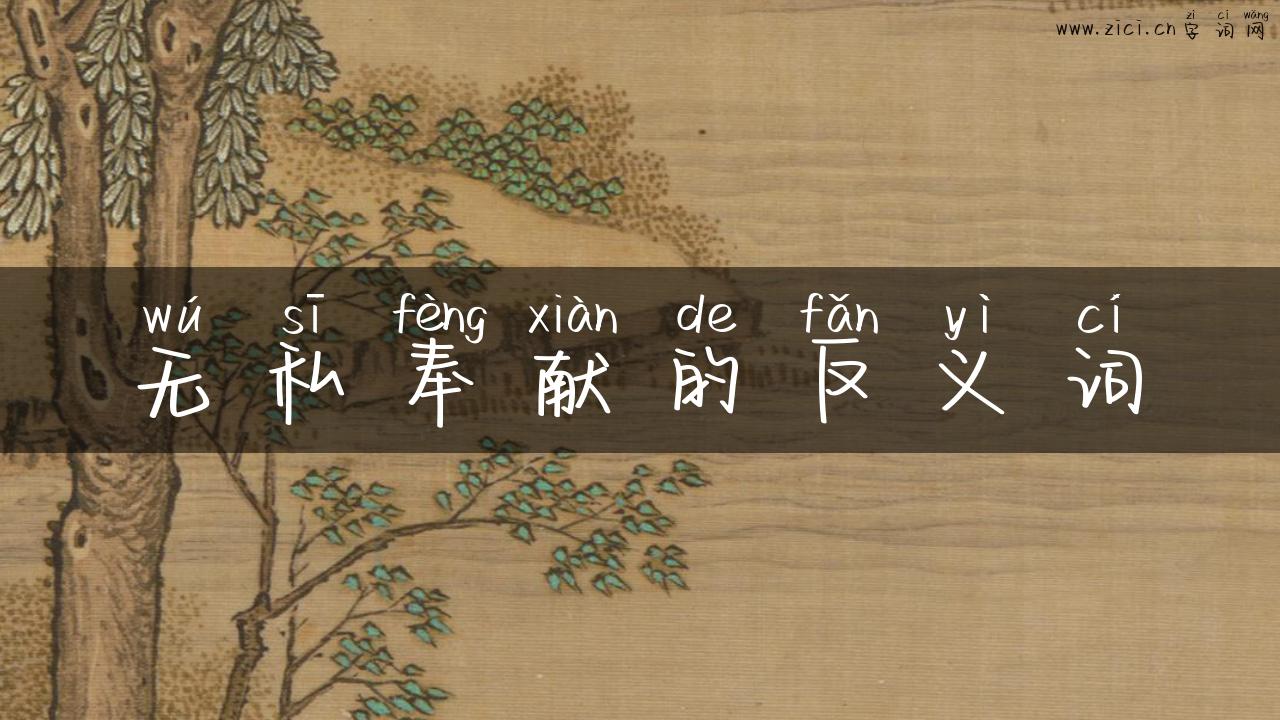 zì cí wǎng
www.zici.cn 字词网
wú sī fèng xiàn de fǎn yì cí
无私奉献的反义词